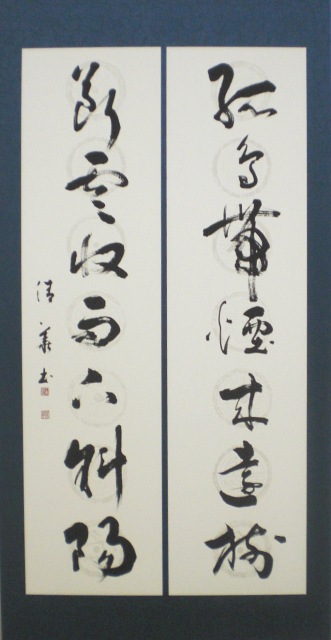 孤鳥帶煙來遠樹
斷雲收雨下斜陽
清華書